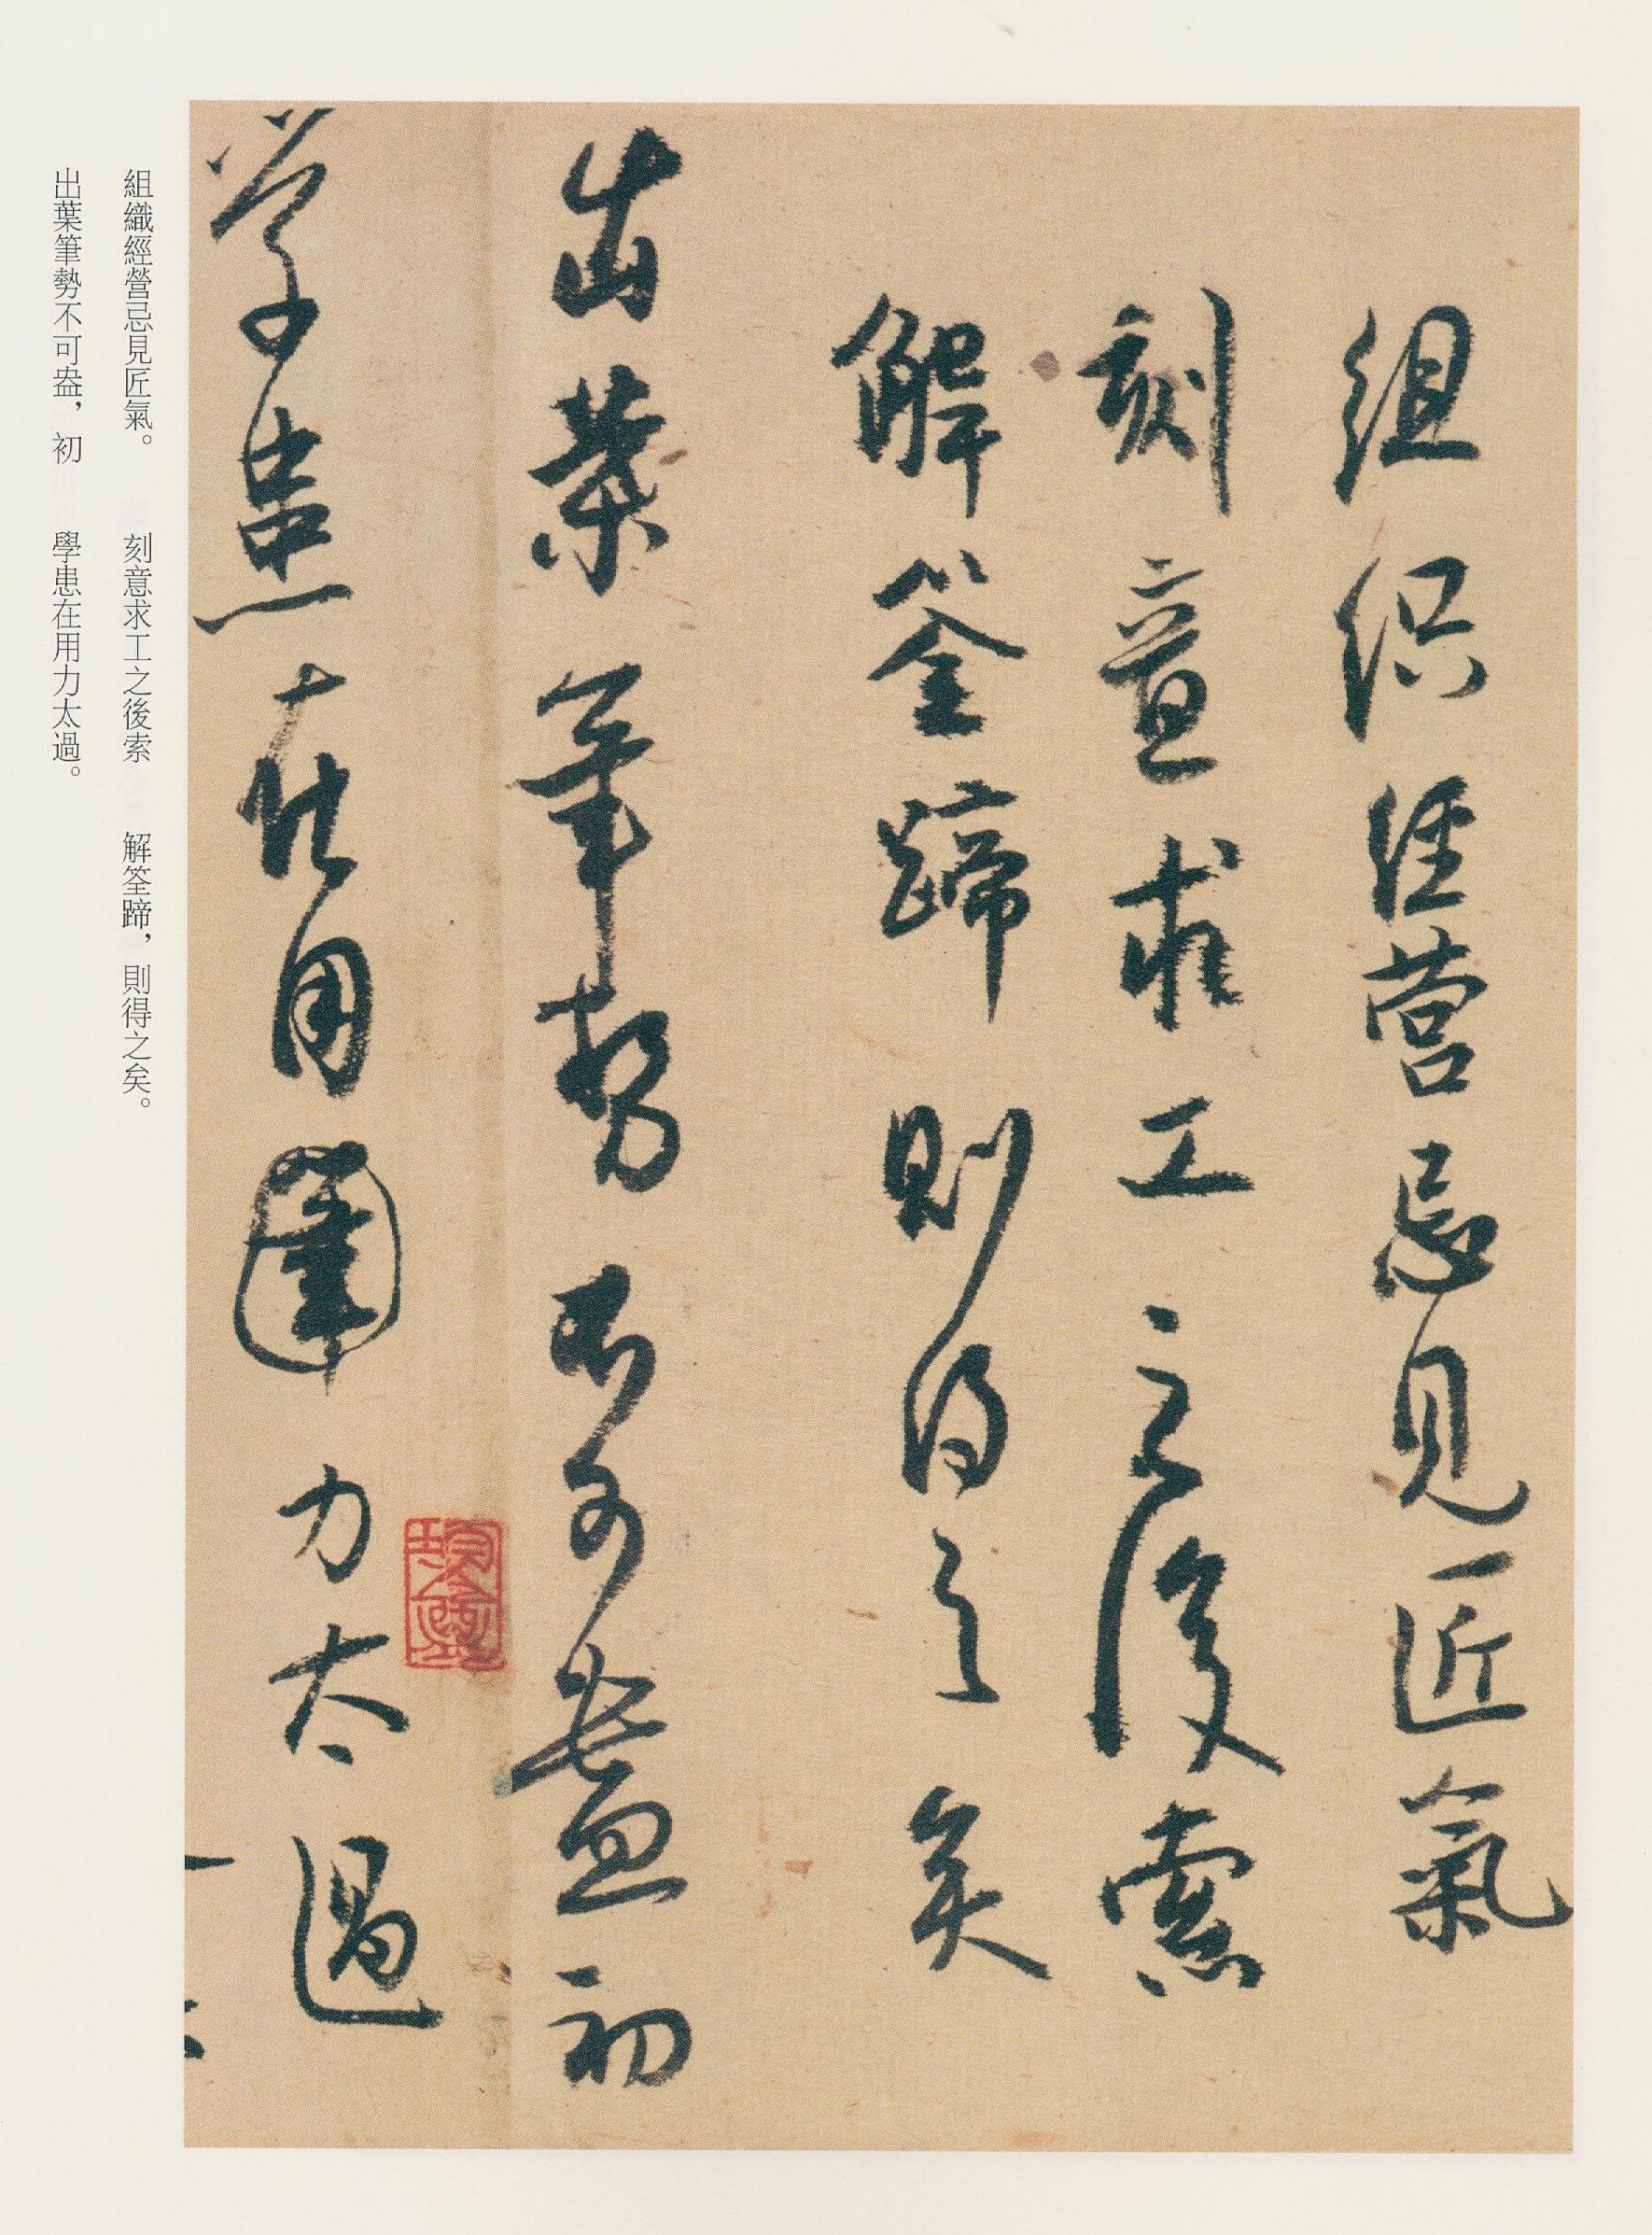 組織經營忌見匠氣
刻意求工之後索
解筌蹄則得之矣
出葉筆勢不可盎初
學患在用筆力太過
組織經營忌見匠氣。 刻意求工之後索 解筌蹄，則得之矣。
出葉筆勢不可盎，初 學患在用力太過。